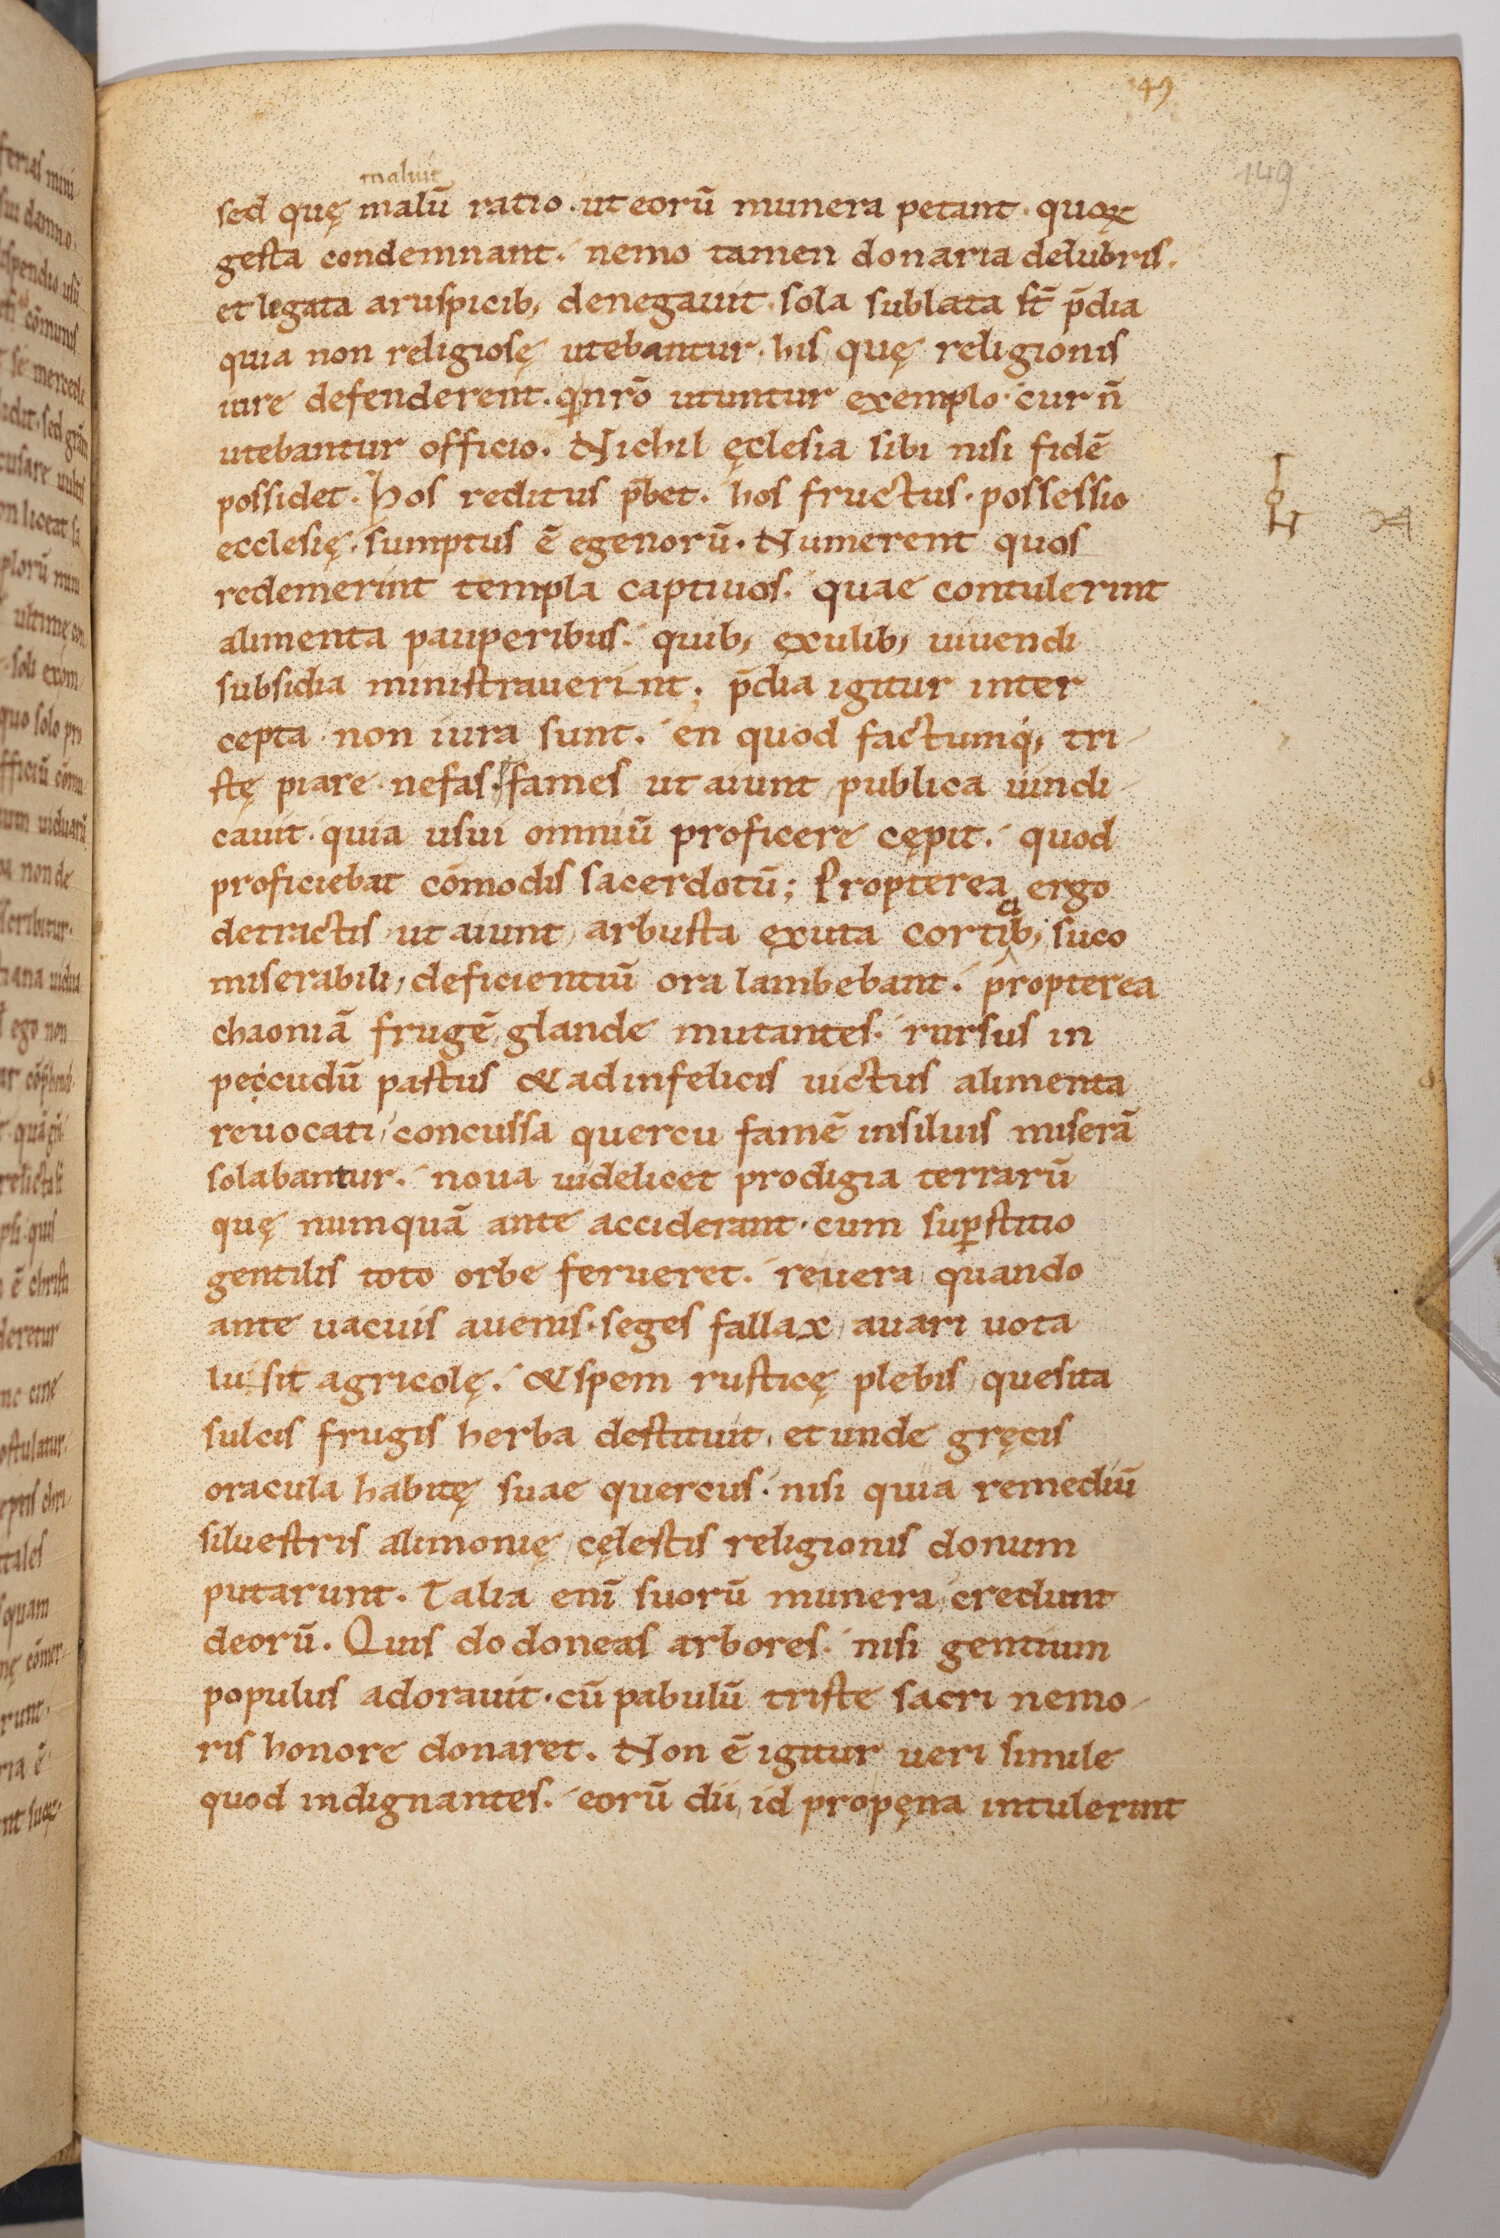 49
149
maluit
sed quę malū ratio · ut eorū munera petant · quoꝝ
gesta condemnant. nemo tamen donaria delubris.
et legata aruspicib; denegauit · sola sublata st̄ p̄dia
quia non religiosę utebantur · his quę religionis
iure defenderent. qi nr̄o utuntur exemplo · cur n̄
utebantur officio. Nichil ęclesia sibi nisi fidē
possidet. Hos reditus p̄bet. hos fructus · possessio
ecclesię · sumptus ē egenorū. Numerent quos
redemerint templa captiuos. quae contulerint
alimenta pauperibus. quib; exulib; uiuendi
subsidia ministrauerint; p̄dia igitur inter
cepta non iura sunt. en quod factumq; tri-
stę piare nefas. fames ut aiunt publica uindi-
cauit · quia usui omniū proficere cępit. quod
proficiebat cōmodis sacerdotū; Propterea ergo
ci
detractis ut aiunt arbusta exuta cortib; suco
miserabili, deficientiū ora lambebant. propterea
chaoniā frugē glande mutantes. rursus in
peccudū pastus & ad infelicis uictus alimenta
reuocati, concussa quercu famē in siluis miserā
solabantur. noua uidelicet prodigia terrarū
quę numquā ante acciderant · cum suꝑstitio
gentilis toto orbe ferueret. reuera quando
ante uacuis auenis · seges fallax auari uota
lusit agricolę. & spem rusticę plebis quesita
sulcis frugis herba destituit, et unde gręcis
oracula habitę suae quercus · nisi quia remediū
siluestris alimonię cęlestis religionis donum
putarunt. Talia enī suorū munera credunt
deorū. Quis dodoneas arbores. nisi gentium
populus adorauit · cū pabulū triste sacri nemo-
ris honore donaret. Non ē igitur ueri simile
quod indignantes. eorū dii, id propęna intulerint